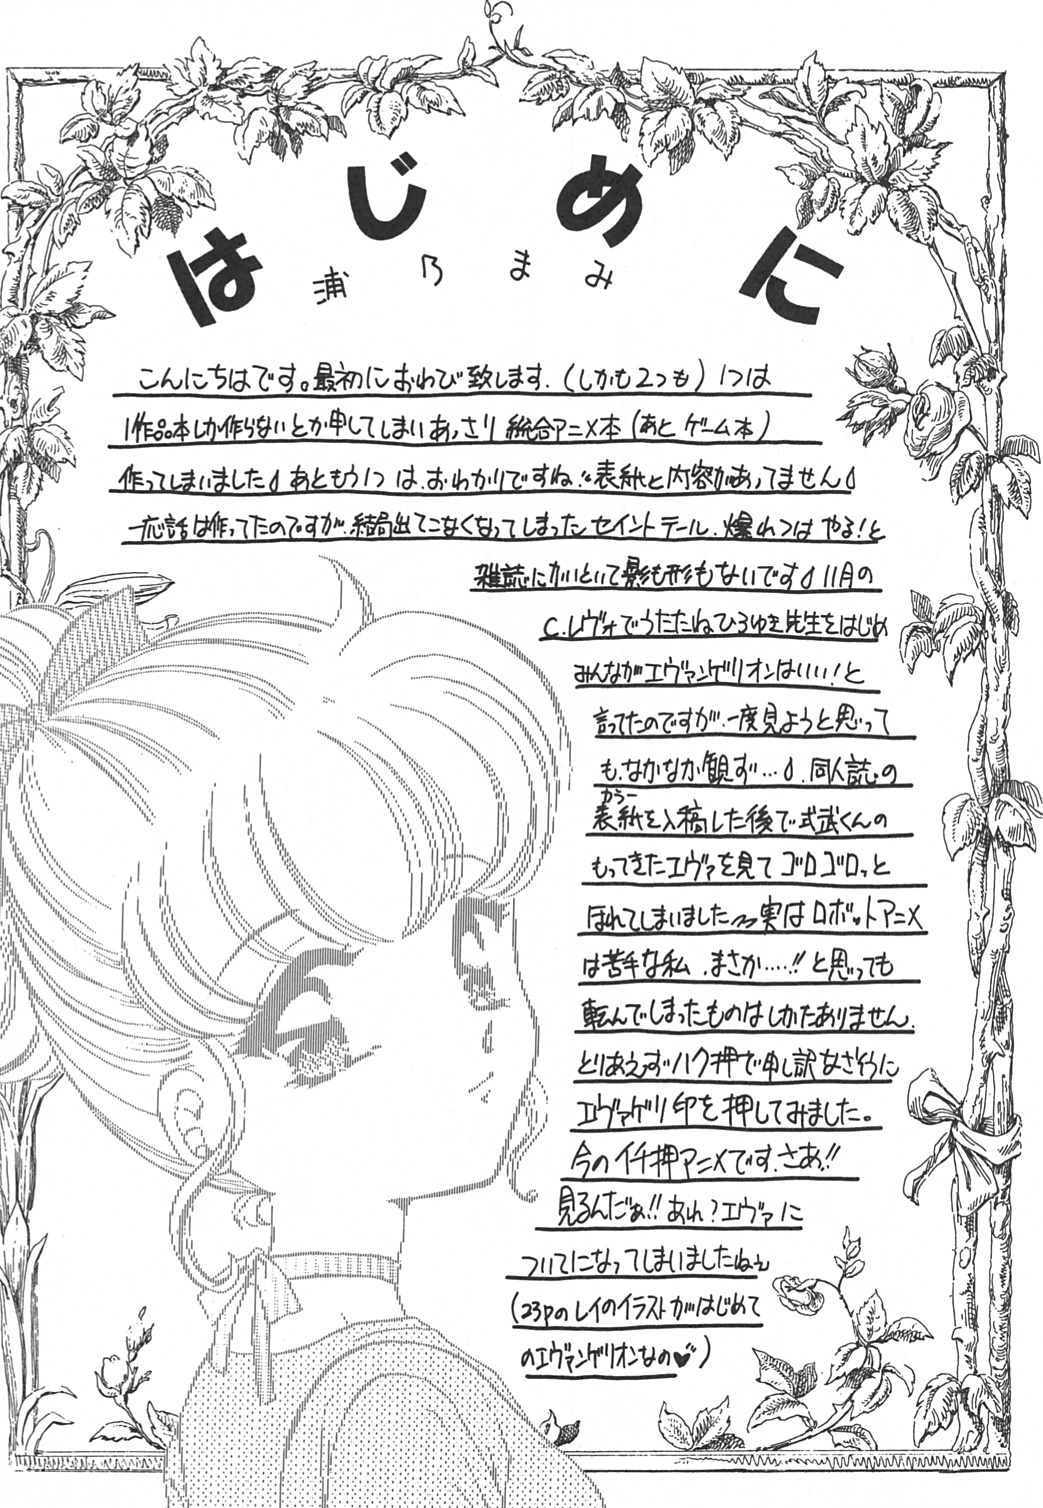 はじめに
浦乃まみ
こんにちはです。最初におわび致します.(しかも2つも)1つは
1作品本しか作らないとか申してしまいあっさり総合アニメ本(あとゲーム本)
作ってしまいました あともう1つは.おわかりですね."表紙と内容があってません
一応話は作ってたのですが.結局出てこなくなってしまったセイントテール.爆れつはやる!と
雑誌にかいといて影も形もないです 11月の
C.レヴォでうたたねひろゆき先生をはじめ
みんながエヴァンゲリオンはいい!と
言ってたのですが.一度見ようと思って
も.なかなか観ず… .同人誌の
カラー
表紙を入稿した後で式武くんの
もってきたエヴァを見てゴロゴロッと
ほれてしまいました〜実はロボットアニメ
は苦手な私.まさか……!!と思っても
転んでしまったものはしかたありません.
とりあえずハク押で申し訳なさそうに
エヴァゲリ印を押してみました。
今のイチ押アニメです.さあ!!
見るんだぁ!!あれ?エヴァに
ついてになってしまいましたねぇ
(23Pのレイのイラストがはじめて
のエヴァンゲリオンなの♥)